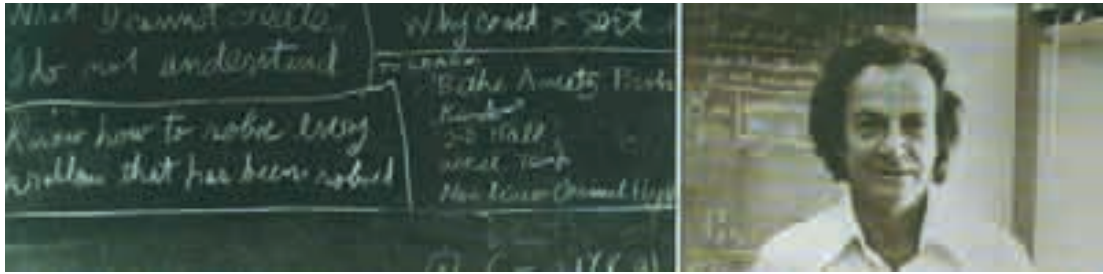 What I cannot create,
I do not understand
Know how to solve every
problem that has been solved
Why const × sort
TO LEARN
Bethe Ansatz Prob.
Kondo
2-D Hall
accel. Temp
Non Linear Classical Hydro